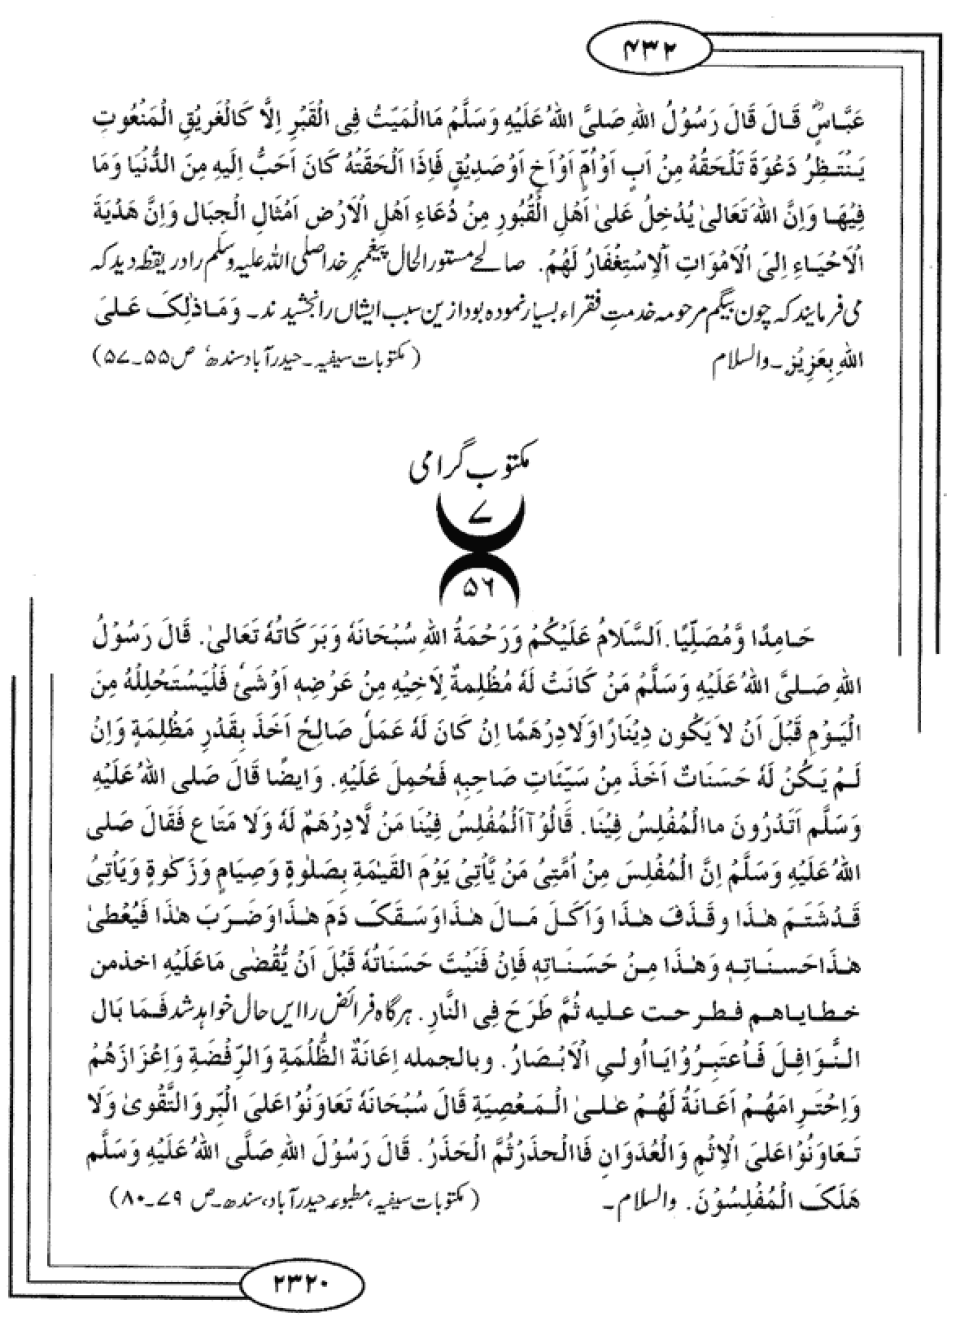 ۴۳۲
عَبَّاسٍؓ قَالَ قَالَ رَسُوْلُ اللهِ صَلَّى اللهُ عَلَيْهِ وَسَلَّمَ مَاالْمَيِّتُ فِى الْقَبْرِ اِلَّا كَالْغَرِيْقِ الْمَنْغُوْتِ
يَنْتَظِرُ دَعْوَةً تَلْحَقُهُ مِنْ اَبٍ اَوْاُمٍّ اَوْاَخٍ اَوْصَدِيْقٍ فَاِذَا اَلْحَقَتْهُ كَانَ اَحَبُّ اِلَيْهِ مِنَ الدُّنْيَا وَمَا
فِيْهَا وَاِنَّ اللهَ تَعَالىٰ يُدْخِلُ عَلىٰ اَهْلِ الْقُبُوْرِ مِنْ دُعَاءِ اَهْلِ الْاَرْضِ اَمْثَالِ الْجِبَالِ وَاِنَّ هَدْيَةَ
الْاَحْيَاءِ اِلىَ الْاَمْوَاتِ الْاِسْتِغْفَارُ لَهُمْ. صالحے مستور الحال پیغمبر خدا صلی اللہ علیہ وسلم را در یقظہ دید کہ
می فرمایند کہ چون بیگم مرحومہ خدمتِ فقراء بسیار نمودہ بود ازین سبب ایشاں را بخشیدند۔ وَمَاذٰلِكَ عَلىَ
اللهِ بِعَزِيْزٍ۔ والسلام (مکتوبات سیفیہ۔ حیدرآباد سندھ ص ۵۵۔۵۷)
مکتوب گرامی
۷
۵۶
حَامِدًا وَّمُصَلِّيًا. اَلسَّلَامُ عَلَيْكُمْ وَرَحْمَةُ اللهِ سُبْحَانَهٗ وَبَرَكَاتُهٗ تَعَالىٰ. قَالَ رَسُوْلُ
اللهِ صَلىَّ اللهُ عَلَيْهِ وَسَلَّمَ مَنْ كَانَتْ لَهٗ مُظْلِمَةٌ لِاَخِيْهِ مِنْ عَرْضِهٖ اَوْشَئٌ فَلْيَسْتَحْلِلْهُ مِنَ
الْيَوْمِ قَبْلَ اَنْ لَا يَكُون دِيْنَارًا وَلَادِرْهَمًا اِنْ كَانَ لَهٗ عَمَلٌ صَالِحٌ اَخَذَ بِقَدْرِ مَظْلِمَةٍ وَاِنْ
لَمْ يَكُنْ لَهٗ حَسَنَاتٌ اَخَذَ مِنْ سَيِّئَاتِ صَاحِبِهٖ فَحُمِلَ عَلَيْهِ. وَايضًا قَالَ صَلى اللهُ عَلَيْهِ
وَسَلَّم اَتَدْرُونَ ماالْمُفْلِسُ فِيْنَا. قَالُوْاۤ اَلْمُفْلِسُ فِيْنَا مَنْ لَّادِرْهَمٌ لَهٗ وَلَا مَتَاع فَقَالَ صَلى
اللهُ عَلَيْهِ وَسَلَّمْ اِنَّ الْمُفْلِسَ مِنْ اُمَّتِىْ مَنْ يَّأْتِىْ يَوْمَ الْقِيٰمَةِ بِصَلٰوةٍ وَصِيَامٍ وَزَكٰوةٍ وَيَأْتِىْ
قَدْشَتَمَ هٰذَا وقَذَفَ هٰذَا وَاَكَلَ مَالَ هٰذَا وَسَفَكَ دَمَ هٰذَا وَضَرَبَ هٰذَا فَيُعْطىٰ
هٰذَا حَسنَاتِهٖ وَهٰذَا مِنْ حَسَنَاتِهٖ فَاِنْ فَنَيْتَ حَسَنَاتُهٗ قَبْلَ اَنْ يُّقْضٰى مَاعَلَيْهِ اخذمن
خطاياهم فطرحت عليه ثُمَّ طَرَحَ فِى النَّارِ. ہرگاہ فرائض را ایں حال خواہد شد فَمَا بَال
النَّوَافِلَ فَاعْتَبِرُوْا يَااُولىِ الْاَبْصَارُ. وبالجمله اِعَانَةُ الظُّلْمَةِ وَالرَّفْضَةِ وَاِعْزَازَهُمْ
وَاِحْتَرِامَهُمْ اَعَانَةٌ لَهُمْ عَلىٰ الْمَعْصِيَةِ قَالَ سُبْحَانَهٗ تَعَاوَنُوْا عَلىَ الْبِّرِ وَالتَّقْوىٰ وَلَا
تَعَاوَنُوْا عَلىَ الْاِثْمِ وَالْعُدَوَانِ فَاالْحَذَرْثُمَّ الْحَذَرُ. قَالَ رَسُوْلَ اللهِ صَلَّى اللهُ عَلَيْهِ وَسَلَّم
هَلَكَ الْمُفْلِسُوْنَ. والسلام۔ (مکتوبات سیفیہ، مطبوعہ حیدرآباد، سندھ۔ص ۷۹۔۸۰)
۲۳۲۰